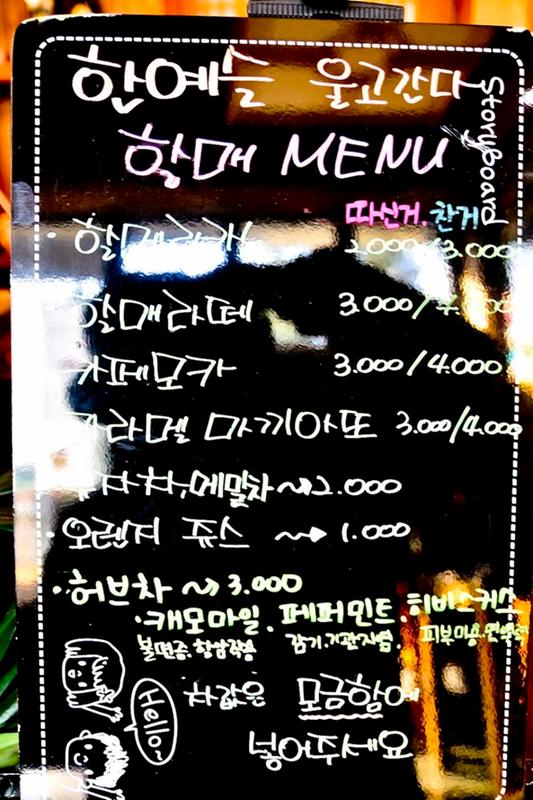 한예슬 울고간다
StoryBoard
할매 MENU
따신거. 찬거
· 할매라카노 2.000/3.000
할매라떼 3.000/4.000
카페모카 3.000/4.000
카라멜 마끼아또 3.000/4.000
메밀차 ~> 2.000
· 오렌지 쥬스 ~> 1.000
· 허브차 ~> 3.000
· 캐모마일. 페퍼민트. 히비스커스
불면증. 항암작용 감기. 기관지염. 피부미용.
Hello~
차값은 모금함에
넣어주세요